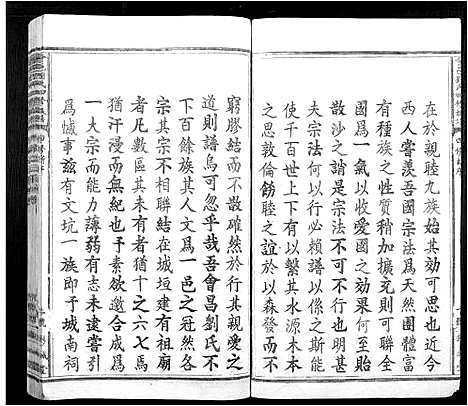 在於親睦九族始其効可思也近今
西人嘗羨吾國宗法爲天然團體具
有種族之性質稍加擴充則可使一
國爲一氣以收愛國之効果何至貽
散沙之誚是宗法不可不行也明甚
夫宗法何以行必賴譜以行之有譜
使千百世下有以繫其水源木本之
思敦倫飭睦之誼於以森發而不可
窮膠結而不散確然於行其親愛之
道則譜烏可忽哉吾會昌劉氏不
下百餘族其人文爲一邑之冠然各
宗其宗不相聯結在城垣建有祖廟
者凡數區其未有者猶十之六七焉
猶汗漫而無紀也予素欲邀合成爲
一大宗而能力諹弱有志未逮嘗引
爲憾事茲有坎坊一族即予城南祠